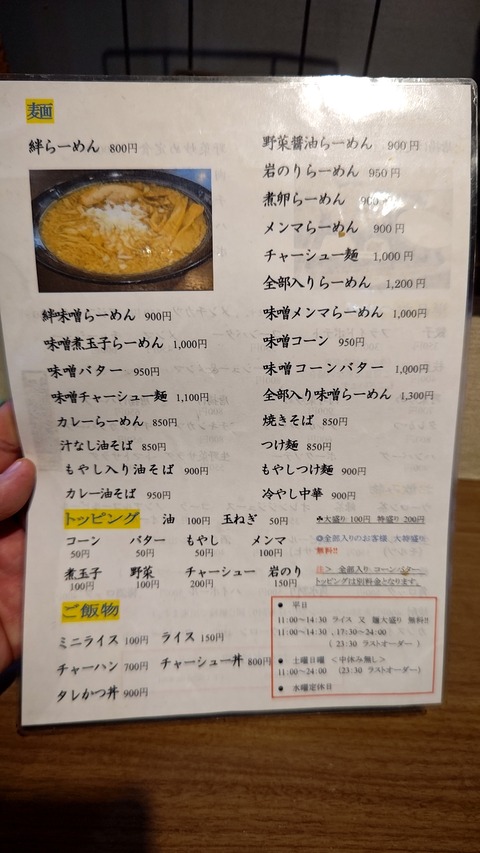 麺
絆らーめん 800円
絆味噌らーめん 900円
味噌煮玉子らーめん 1,000円
味噌バター 950円
味噌チャーシュー麺 1,100円
カレーらーめん 850円
汁なし油そば 850円
もやし入り油そば 900円
カレー油そば 950円
野菜醬油らーめん 900円
岩のりらーめん 950円
煮卵らーめん 900円
メンマらーめん 900円
チャーシュー麺 1,000円
全部入りらーめん 1,200円
味噌メンマらーめん 1,000円
味噌コーン 950円
味噌コーンバター 1,000円
全部入り味噌らーめん 1,300円
焼きそば 850円
つけ麺 850円
もやしつけ麺 900円
冷やし中華 900円
トッピング 油 100円 玉ねぎ 50円
コーン バター もやし メンマ
50円 50円 50円 100円
煮玉子 野菜 チャーシュー 岩のり
100円 100円 200円 150円
☘大盛り 100円 特盛り 200円
◎全部入りのお客様 大特盛り
無料!!
注> 全部入り コーンバター
トッピングは別料金となります。
ご飯物
ミニライス 100円 ライス 150円
チャーハン 700円 チャーシュー丼 800円
タレかつ丼 900円
● 平日
11:00~14:30 ライス 又 麺大盛り 無料!!
11:00~14:30 、17:30~24:00
( 23:30 ラストオーダー )
● 土曜日曜 <中休み無し>
11:00~24:00 (23:30 ラストオーダー)
● 水曜定休日